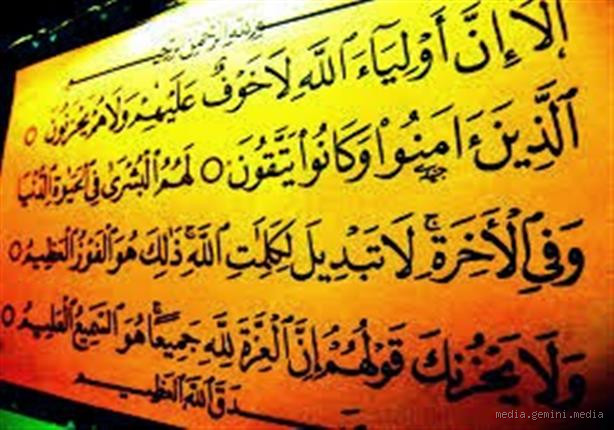 بسم الله الرحمن الرحيم
أَلَا إِنَّ أَوْلِيَاءَ ٱللَّهِ لَا خَوْفٌ عَلَيْهِمْ وَلَا هُمْ يَحْزَنُونَ ○
ٱلَّذِينَ ءَامَنُوا وَكَانُوا يَتَّقُونَ ○ لَهُمُ ٱلْبُشْرَىٰ فِي ٱلْحَيَوٰةِ ٱلدُّنْيَا
وَفِي ٱلْأَخِرَةِ ۚ لَا تَبْدِيلَ لِكَلِمَٰتِ ٱللَّهِ ۚ ذَٰلِكَ هُوَ ٱلْفَوْزُ ٱلْعَظِيمُ ○
وَلَا يَحْزُنكَ قَوْلُهُمْ إِنَّ ٱلْعِزَّةَ لِلَّهِ جَمِيعًا ۚ هُوَ ٱلسَّمِيعُ ٱلْعَلِيمُ ○
صدق الله العظيم
media.gemini.media